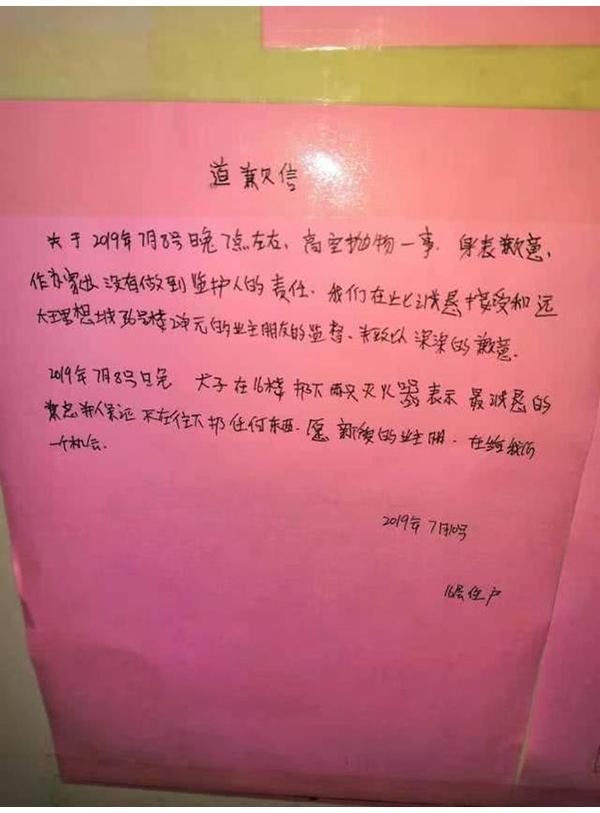 道歉信
关于2019年7月8号日晚7点左右，高空抛物一事．身表歉意，
作为家长没有做到监护人的责任．我们在此诚恳接受和远
大理想城36号楼2单元的业主朋友的监督、并致以深深的歉意．
2019年7月8号日晚 犬子在16楼扔下两只灭火器表示最诚恳的
兼意并保证不在往下扔任何东西．愿新後的业主朋．在给我们
一个机会．
2019年7月10号
16层住户